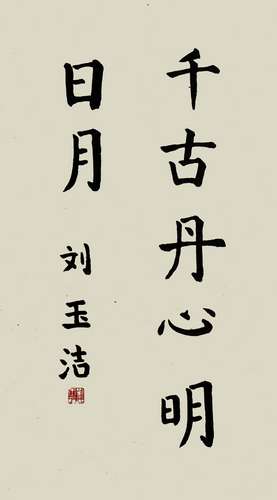 千古丹心明
日月
刘玉洁